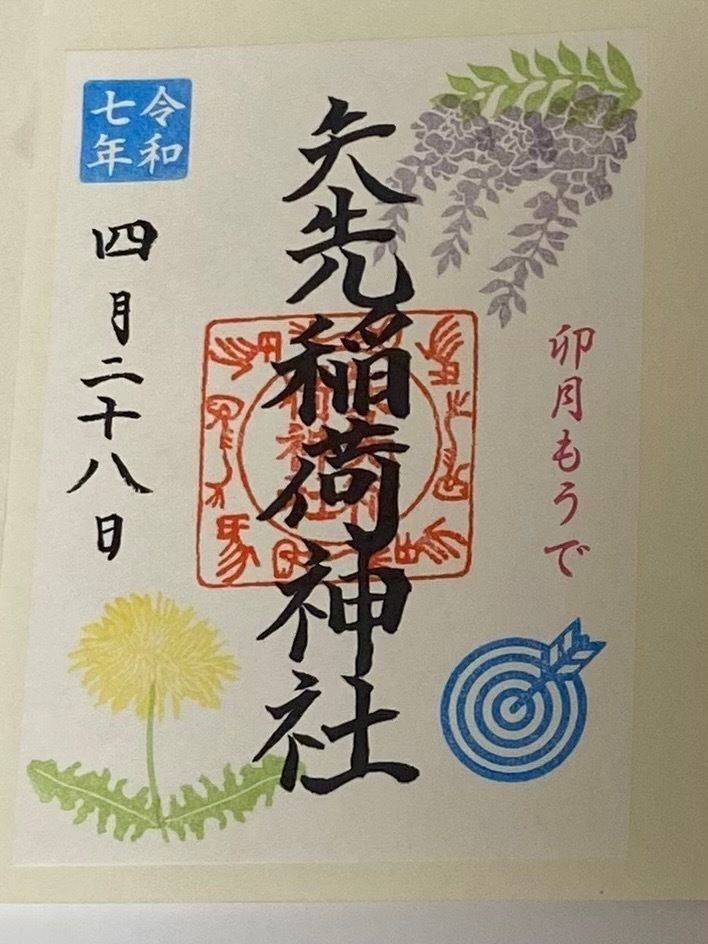 卯月もうで
矢先稲荷神社
令和
七年
四月二十八日